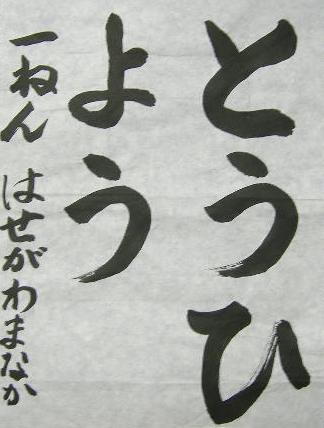 とうひ
よう
一ねん はせがわまなか